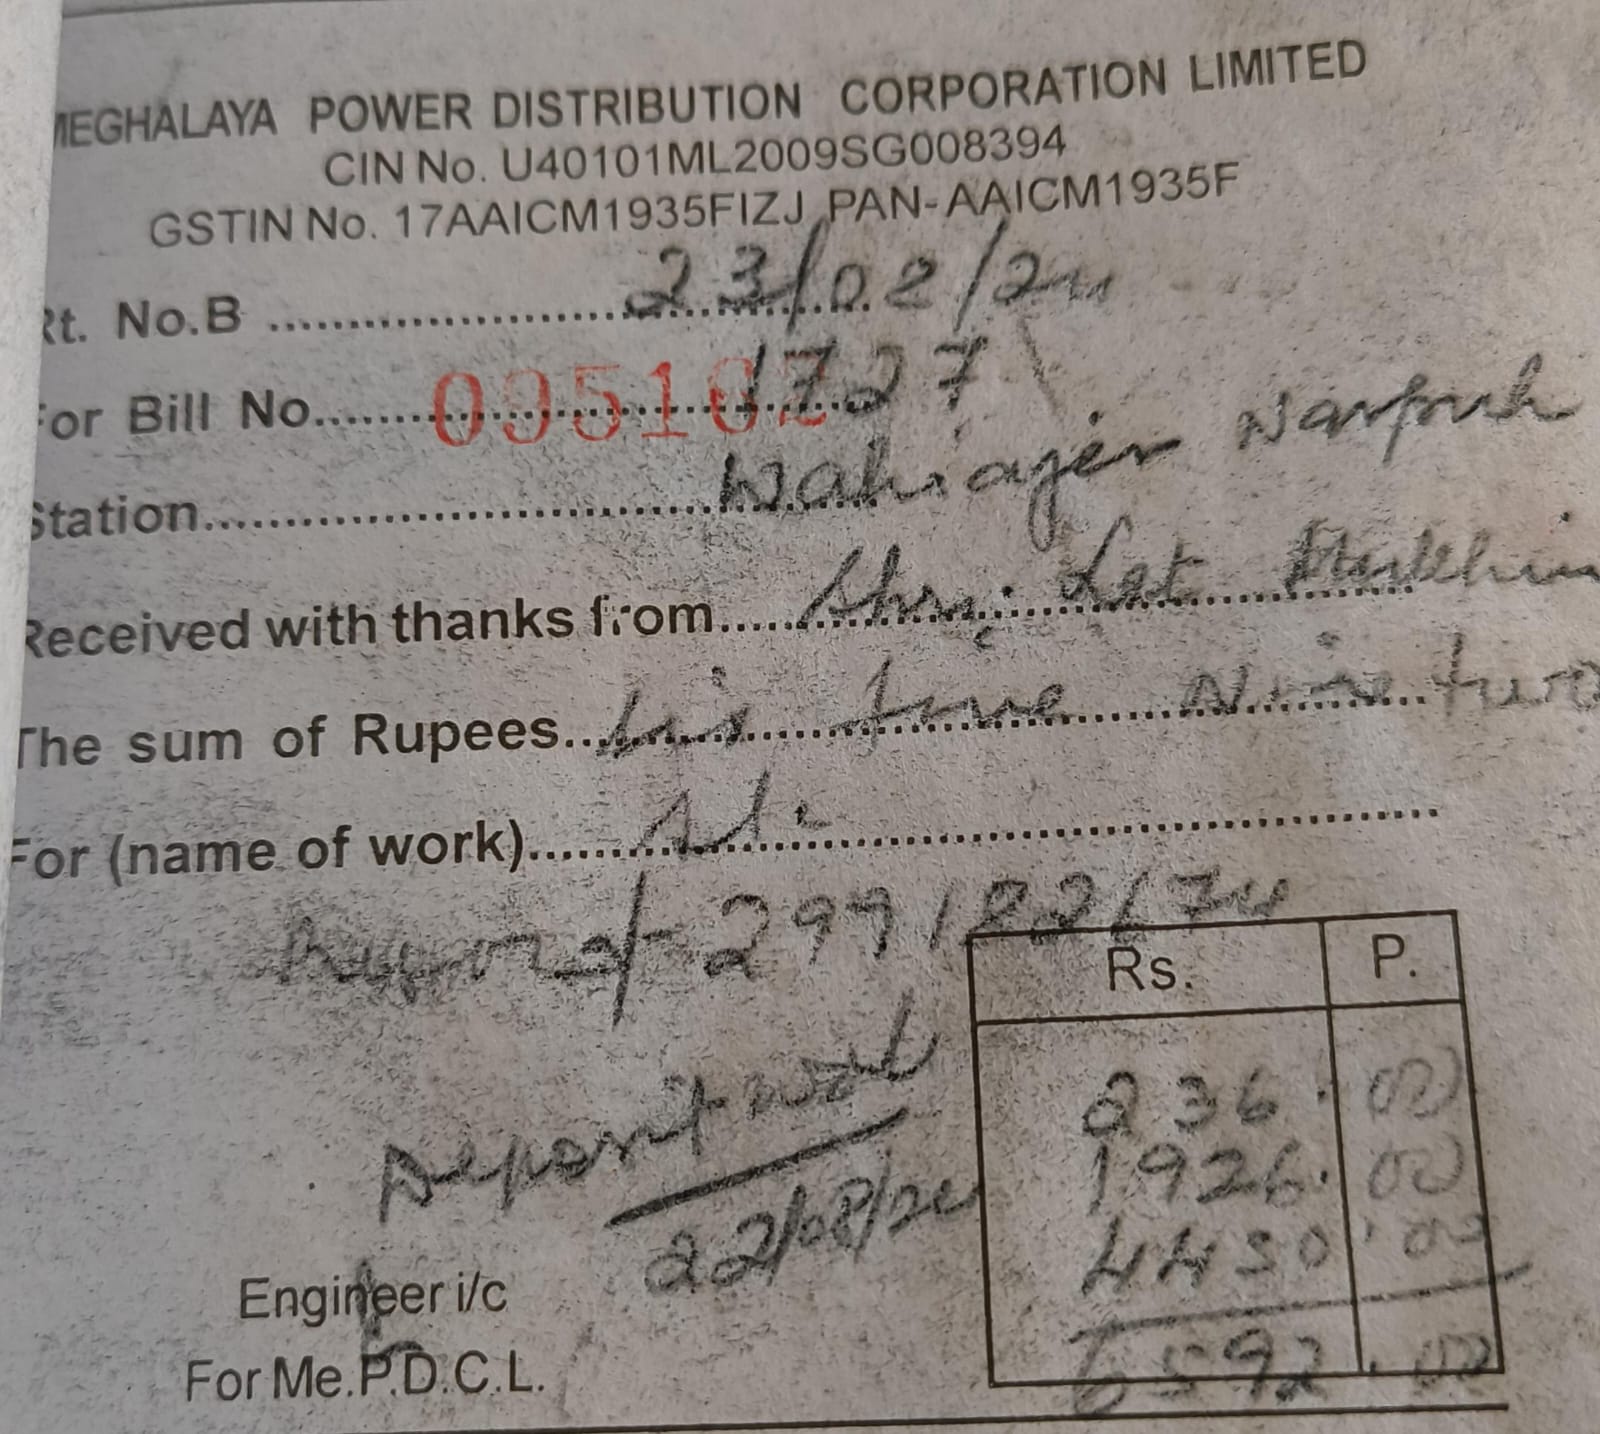 MEGHALAYA POWER DISTRIBUTION CORPORATION LIMITED
CIN No. U40101ML2009SG008394
GSTIN No. 17AAICM1935FIZJ PAN-AAICM1935F
Rt. No.B 23/02/24
For Bill No. 095102 1727
Station Wahiajer Narpuh
Received with thanks from Shri. Let
The sum of Rupees Six five Nine two
For (name of work)
299182/74
Rs. P.
236.00
Deposit
1926.00
22/08/24
4430.00
Engineer i/c
6592.00
For Me.P.D.C.L.